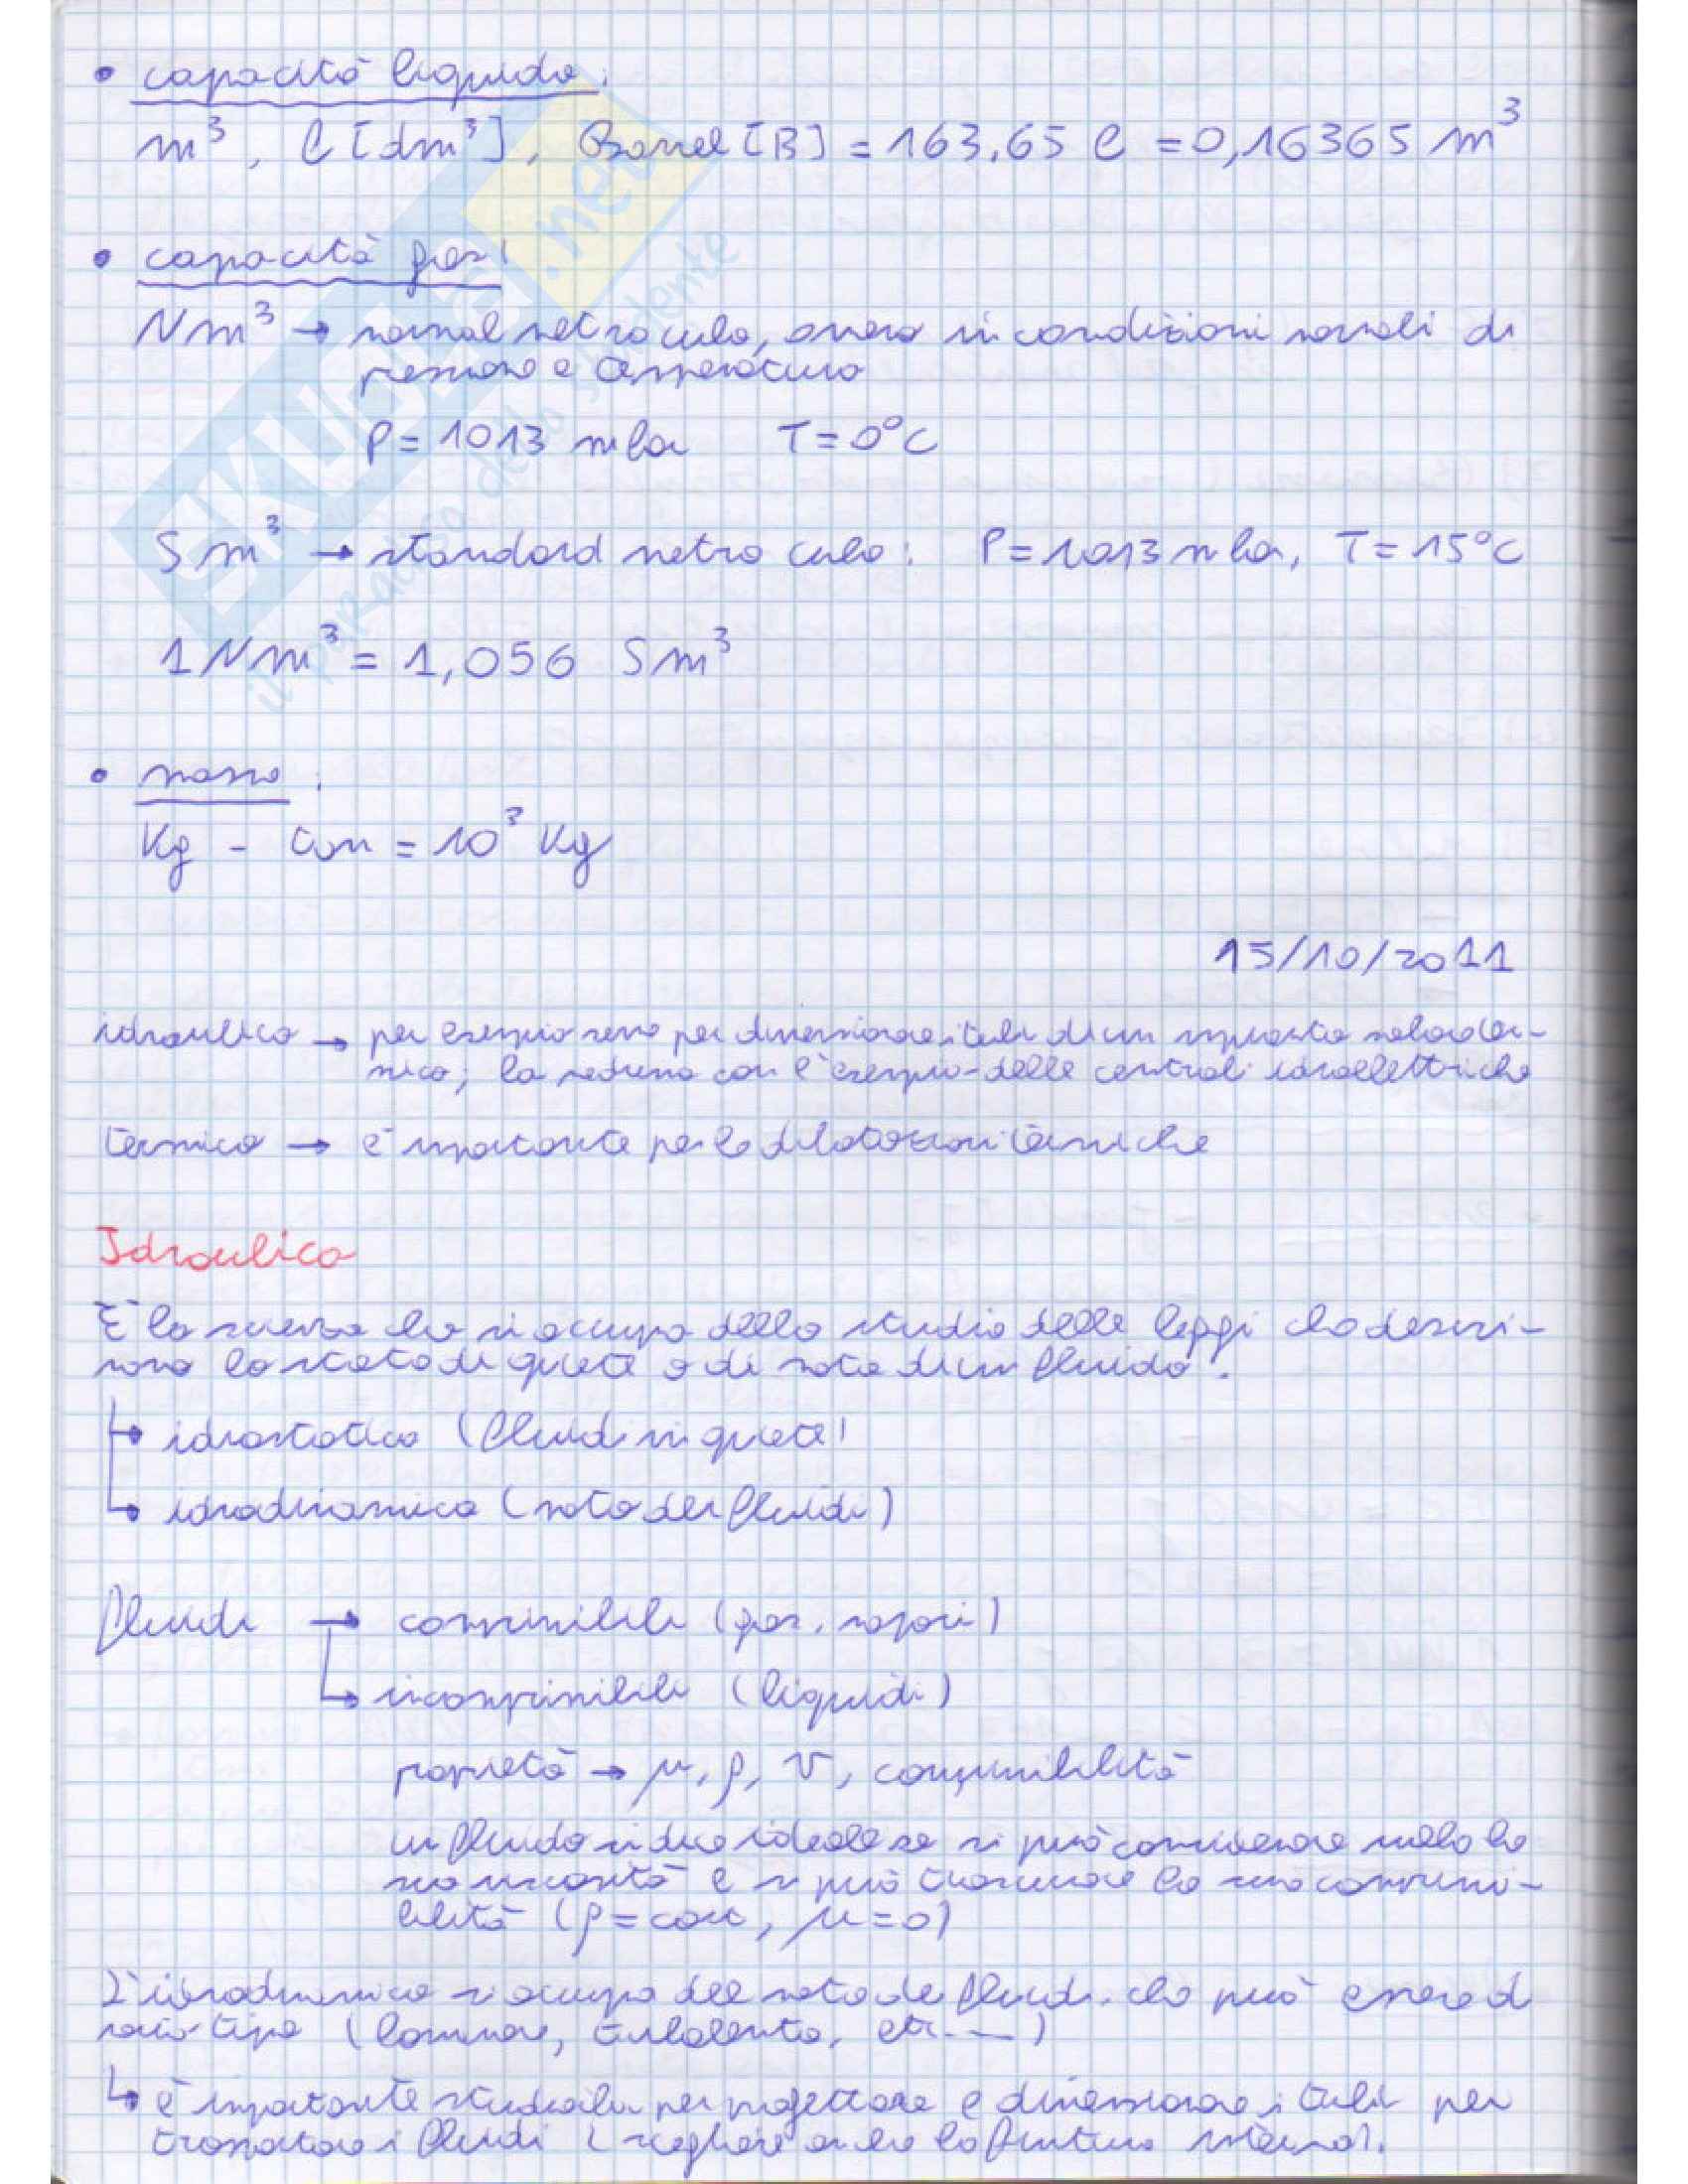 • capacità liquido:
m³, l [dm³], Barrel [B] = 163,65 l = 0,16365 m³
• capacità gas:
Nm³ → normal metro cubo, ovvero in condizioni normali di
pressione e temperatura
P = 1013 mbar T = 0°C
Sm³ → standard metro cubo: P = 1013 mbar, T = 15°C
1 Nm³ = 1,056 Sm³
• massa:
Kg - ton = 10³ Kg
15/10/2011
idraulica → per esempio serve per dimensionare i tubi di un impianto
; la vedremo con l'esempio delle centrali idroelettriche
termica → è importante per le dilatazioni termiche
Idraulica
È la scienza che si occupa dello studio delle leggi che descri-
vono lo stato di quiete o di moto di un fluido.
↳ idrostatica (fluidi in quiete)
↳ idrodinamica (moto dei fluidi)
fluidi → comprimibili (gas, vapori)
↳ incomprimibili (liquidi)
proprietà → μ, ρ, v, comprimibilità
un fluido si dice ideale se si può considerare nulla la
sua viscosità e si può trascurare la sua comprimi-
bilità (ρ = cost, μ = 0)
L'idrodinamica si occupa del moto dei fluidi, che può essere di
vario tipo (laminare, turbolento, etc...)
↳ è importante studiarla per progettare e dimensionare i tubi per
trasportare i fluidi (scegliere anche la finitura interna).
SKUOLA.net
il paradiso dello studente